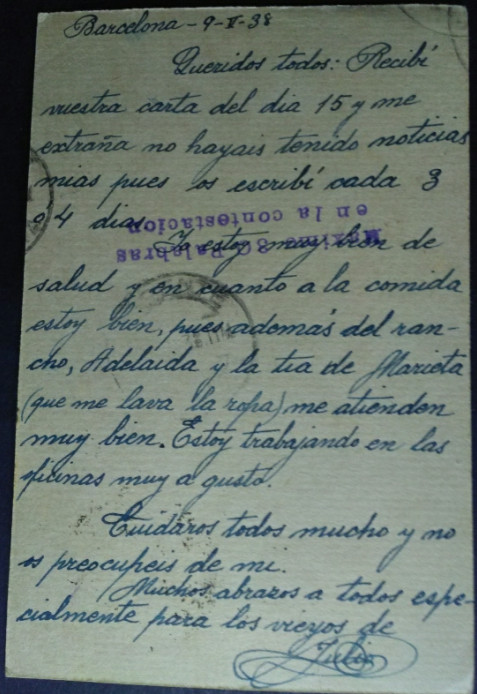 Barcelona - 9-V-38
Queridos todos: Recibí
vuestra carta del dia 15 y me
extraña no hayais tenido noticias
mias pues os escribí cada 3
o 4 dias.
Máximo 30 Palabras
en la contestación
Yo estoy muy bien de
salud y en cuanto a la comida
estoy bien, pues además del ran-
cho, Adelaida y la tia de Marieta
(que me lava la ropa) me atienden
muy bien. Estoy trabajando en las
oficinas muy a gusto.
Cuidaros todos mucho y no
os preocupeis de mi.
Muchos abrazos a todos espe-
cialmente para los viejos de
Julio